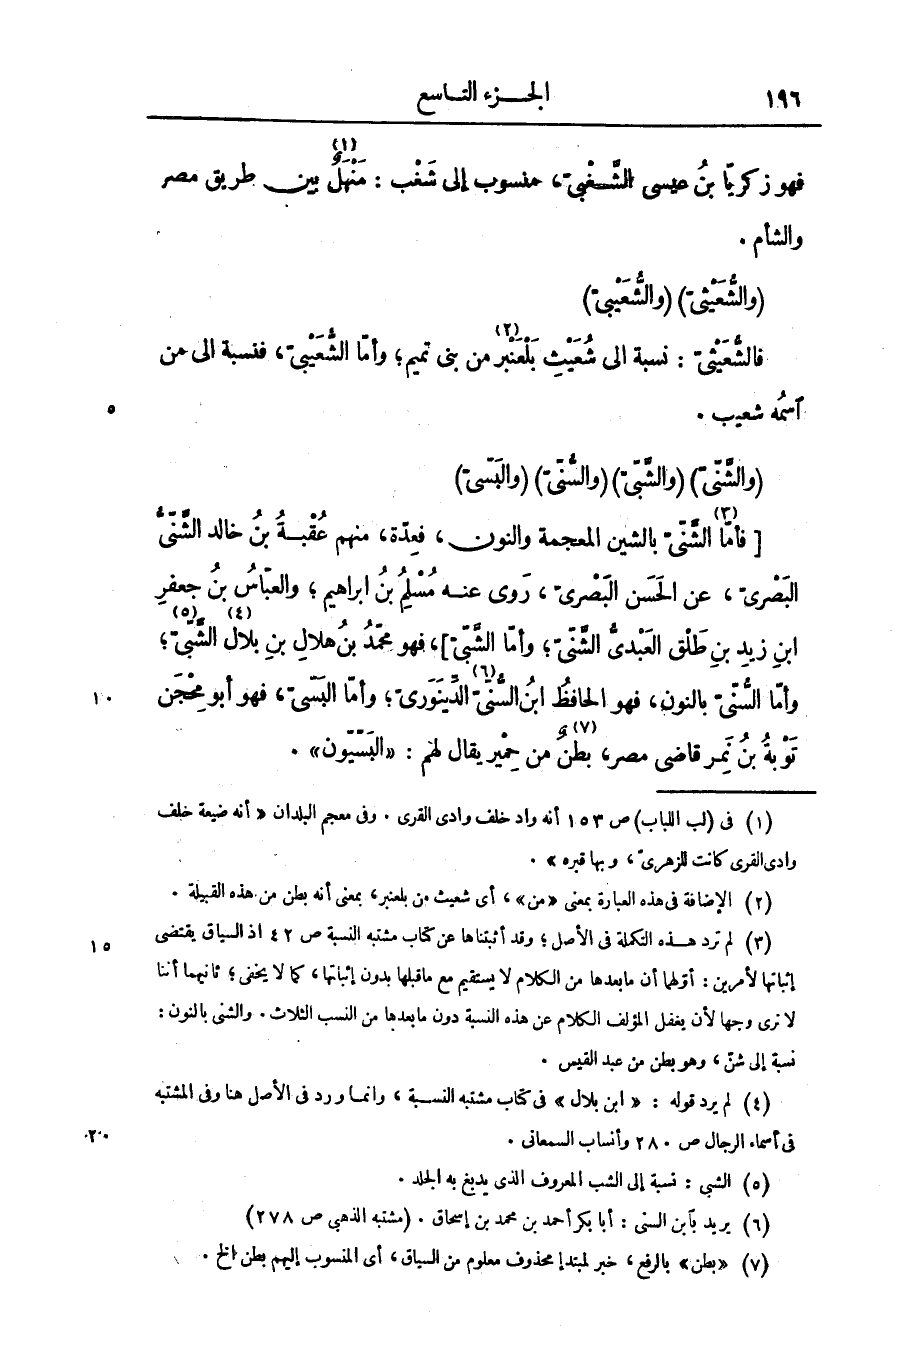 ١٩٦ الجـزء التـاسع
فهو زكريّا بنُ عيسى الشَّغْبىّ، منسوب إلى شَغْب : مَنْهَلٌ(١) بين طريق مصر
والشأم .
(والشُّعَيْثىّ) (والشُّعَيْبىّ)
فالشُّعَيْثىّ : نسبة الى شُعَيْثِ بَلْعَنْبَر(٢) من بنى تميم؛ وأمّا الشُّعَيْبىّ، فنسبة الى من
٥ آسمُه شعيب .
(والشَّنّىّ) (والشَّبّىّ) (والسُّنّىّ) (والبَسّىّ)
[ فأمّا(٣) الشَّنّىّ بالشين المعجمة والنون، فعِدّة، منهم عُقْبةُ بنُ خالد الشَّنّىُّ
البَصْرىّ، عن الحَسَن البَصْرىّ، رَوى عنـه مُسْلِمُ بنُ ابراهيم؛ والعبّاسُ بنُ جعفرِ
ابنِ زيدِ بنِ طَلْقِ العَبْدىُّ الشَّنّىّ؛ وأمّا الشَّبّىّ]، فهو محمّدُ بنُ هلالِ بنِ بلال(٤) الشَّبّىّ(٥)؛
١٠ وأمّا السُّنّىّ بالنون، فهو الحافظُ ابنُ السُّنّىّ(٦) الدِّينَوَرىّ؛ وأمّا البَسّىّ، فهو أبو مِحْجَن
تَوْبةُ بنُ نَمِر قاضى مصر، بطنٌ(٧) من حِمْير يقال لهم : «البَسّيّون» .
(١) فى (لب اللباب) ص ١٥٣ أنه واد خلف وادى القرى . وفى معجم البلدان « أنه ضيعة خلف
وادى القرى كانت للزهرىّ، وبها قبره » .
(٢) الإضافة فى هذه العبارة بمعنى «من»، أى شعيث من بلعنبر، بمعنى أنه بطن من هذه القبيلة .
١٥ (٣) لم ترد هـذه التكملة فى الأصل؛ وقد أثبتناها عن كتاب مشتبه النسبة ص ٤٢ اذ السياق يقتضى
إثباتها لأمرين : أوّلهما أن مابعدها من الكلام لا يستقيم مع ماقبلها بدون إثباتها، كما لا يخفى؛ ثانيهما أننا
لا نرى وجها لأن يغفل المؤلف الكلام عن هذه النسبة دون مابعدها من النسب الثلاث. والشنى بالنون :
نسبة إلى شنّ، وهو بطن من عبد القيس .
(٤) لم يرد قوله : « ابن بلال » فى كتاب مشتبه النسـبة، وانمـا ورد فى الأصل هنا وفى المشتبه
٢٠ فى أسماء الرجال ص ٢٨٠ وأنساب السمعانى .
(٥) الشبى : نسبة إلى الشب المعروف الذى يدبغ به الجلد .
(٦) يريد بآبن السنى : أبا بكر أحمد بن محمد بن إسحاق . (مشتبه الذهبى ص ٢٧٨)
(٧) «بطن» بالرفع، خبر لمبتدإ محذوف معلوم من السياق، أى المنسوب إليهم بطن الخ .